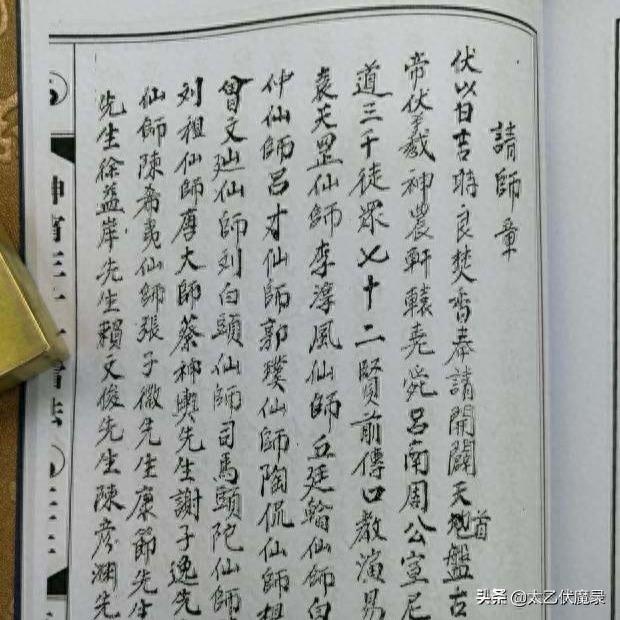 請師章
伏以日吉時良焚香奉請開闢天地盤古首
帝伏羲神農軒轅堯舜呂南周公室尼
道三千徒眾七十二賢前傳口教演易
袁天罡仙師李淳風仙師丘廷翰仙師白
仲仙師呂才仙師郭璞仙師陶侃仙師
曾文辿仙師刘白頭仙師司馬頭陀仙師
刘祖仙師唐大師蔡神輿先生謝子逸先
仙師陳希夷仙師張子微先生康節先生
先生徐益岸先生賴文俊先生陳彥淵先
头条 @太乙伏魔录